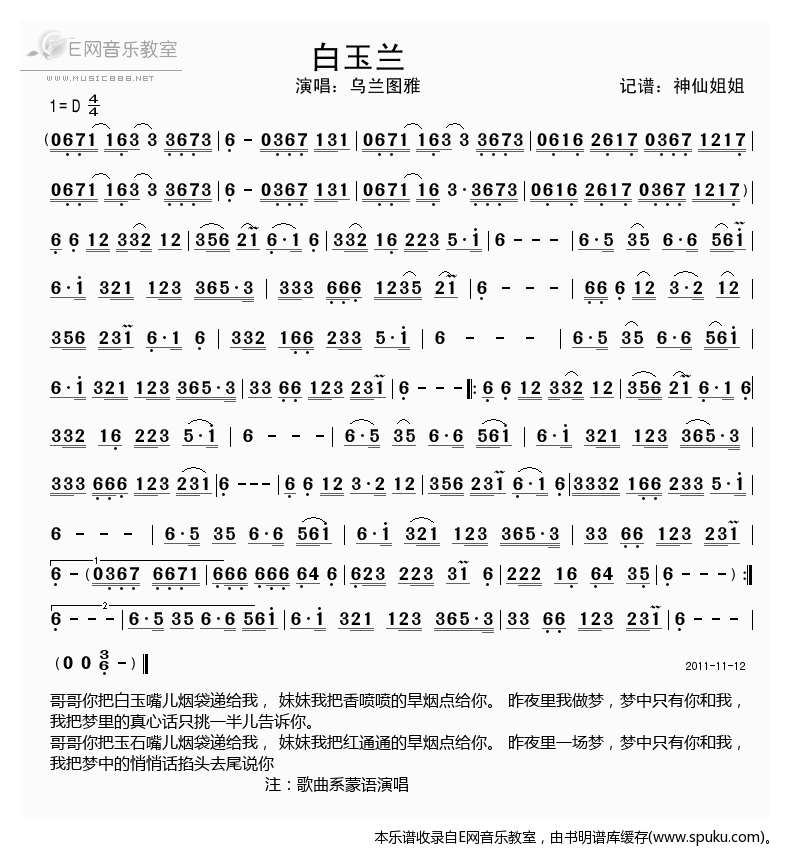 E网音乐教室
WWW.MUSIC888.NET
白玉兰
演唱：乌兰图雅
记谱：神仙姐姐
1=D 4/4
(0671 163 3 3673|6 - 0367 131|0671 163 3 3673|0616 2617 0367 1217|
0671 163 3 3673|6 - 0367 131|0671 16 3·3673|0616 2617 0367 1217)
6 6 12 332 12|356 21 6·1 6|332 16 223 5·1|6 - - -|6·5 35 6·6 561|
6·1 321 123 365·3|333 666 1235 21|6 - - -|66 6 12 3·2 12|
356 231 6·1 6|332 166 233 5·1|6 - - -|6·5 35 6·6 561|
6·1 321 123 365·3|33 66 123 231|6 - - -‖:6 6 12 332 12|356 21 6·1 6|
332 16 223 5·1|6 - - -|6·5 35 6·6 561|6·1 321 123 365·3|
333 666 123 231|6 - - -|6 6 12 3·2 12|356 231 6·1 6|3332 166 233 5·1|
6 - - -|6·5 35 6·6 561|6·1 321 123 365·3|33 66 123 231|
1
6 -(0367 6671|666 666 64 6|623 223 31 6|222 16 64 35|6 - - -):‖
2
6 - - -|6·5 35 6·6 561|6·1 321 123 365·3|33 66 123 231|6 - - -|
(0 0 3/6 -)‖
2011-11-12
哥哥你把白玉嘴儿烟袋递给我， 妹妹我把香喷喷的旱烟点给你。 昨夜里我做梦，梦中只有你和我，
我把梦里的真心话只挑一半儿告诉你。
哥哥你把玉石嘴儿烟袋递给我， 妹妹我把红通通的旱烟点给你。 昨夜里一场梦，梦中只有你和我，
我把梦中的悄悄话掐头去尾说你
注：歌曲系蒙语演唱
本乐谱收录自E网音乐教室，由书明谱库缓存(www.spuku.com)。